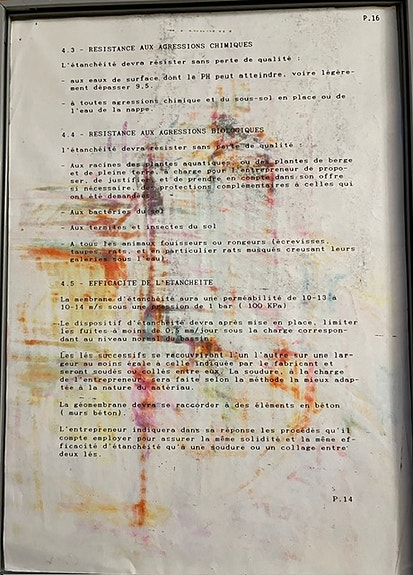 P.16
4.3 - RESISTANCE AUX AGRESSIONS CHIMIQUES
L'étanchéité devra résister sans perte de qualité :
- aux eaux de surface dont le PH peut atteindre, voire légère-
ment dépasser 9,5.
- à toutes agressions chimique et du sous-sol en place ou de
l'eau de la nappe.
4.4 - RESISTANCE AUX AGRESSIONS BIOLOGIQUES
l'étanchéité devra résister sans perte de qualité :
- Aux racines des plantes aquatiques, ou des plantes de berge
et de pleine terre, à charge pour l'entrepreneur de propo-
ser, de justifier et de prendre en compte dans son offre
si nécessaire, les protections complémentaires à celles qui
ont été demandées.
- Aux bactéries du sol
- Aux termites et insectes du sol
- A tous les animaux fouisseurs ou rongeurs (écrevisses,
taupes, rats, et en particulier rats musqués creusant leurs
galeries sous l'eau).
4.5 - EFFICACITE DE L'ETANCHEITE
La membrane d'étanchéité aura une perméabilité de 10-13 à
10-14 m/s sous une pression de 1 bar ( 100 KPa)
Le dispositif d'étanchéité devra après mise en place, limiter
les fuites à moins de 0,5 mm/jour sous la charge correspon-
dant au niveau normal
Les lés successifs se recouvriront l'un l'autre sur une lar-
geur au moins égale à celle indiquée par le fabricant et
seront soudés ou collés entre eux. La soudure, à la charge
de l'entrepreneur, sera faite selon la méthode la mieux adap-
tée à la nature du matériau.
La géomembrane devra se raccorder à des éléments en béton
( murs béton).
L'entrepreneur indiquera dans sa réponse les procédés qu'il
compte employer pour assurer la même solidité et la même ef-
ficacité d'étanchéité qu'à une soudure ou un collage entre
deux lés.
P.14